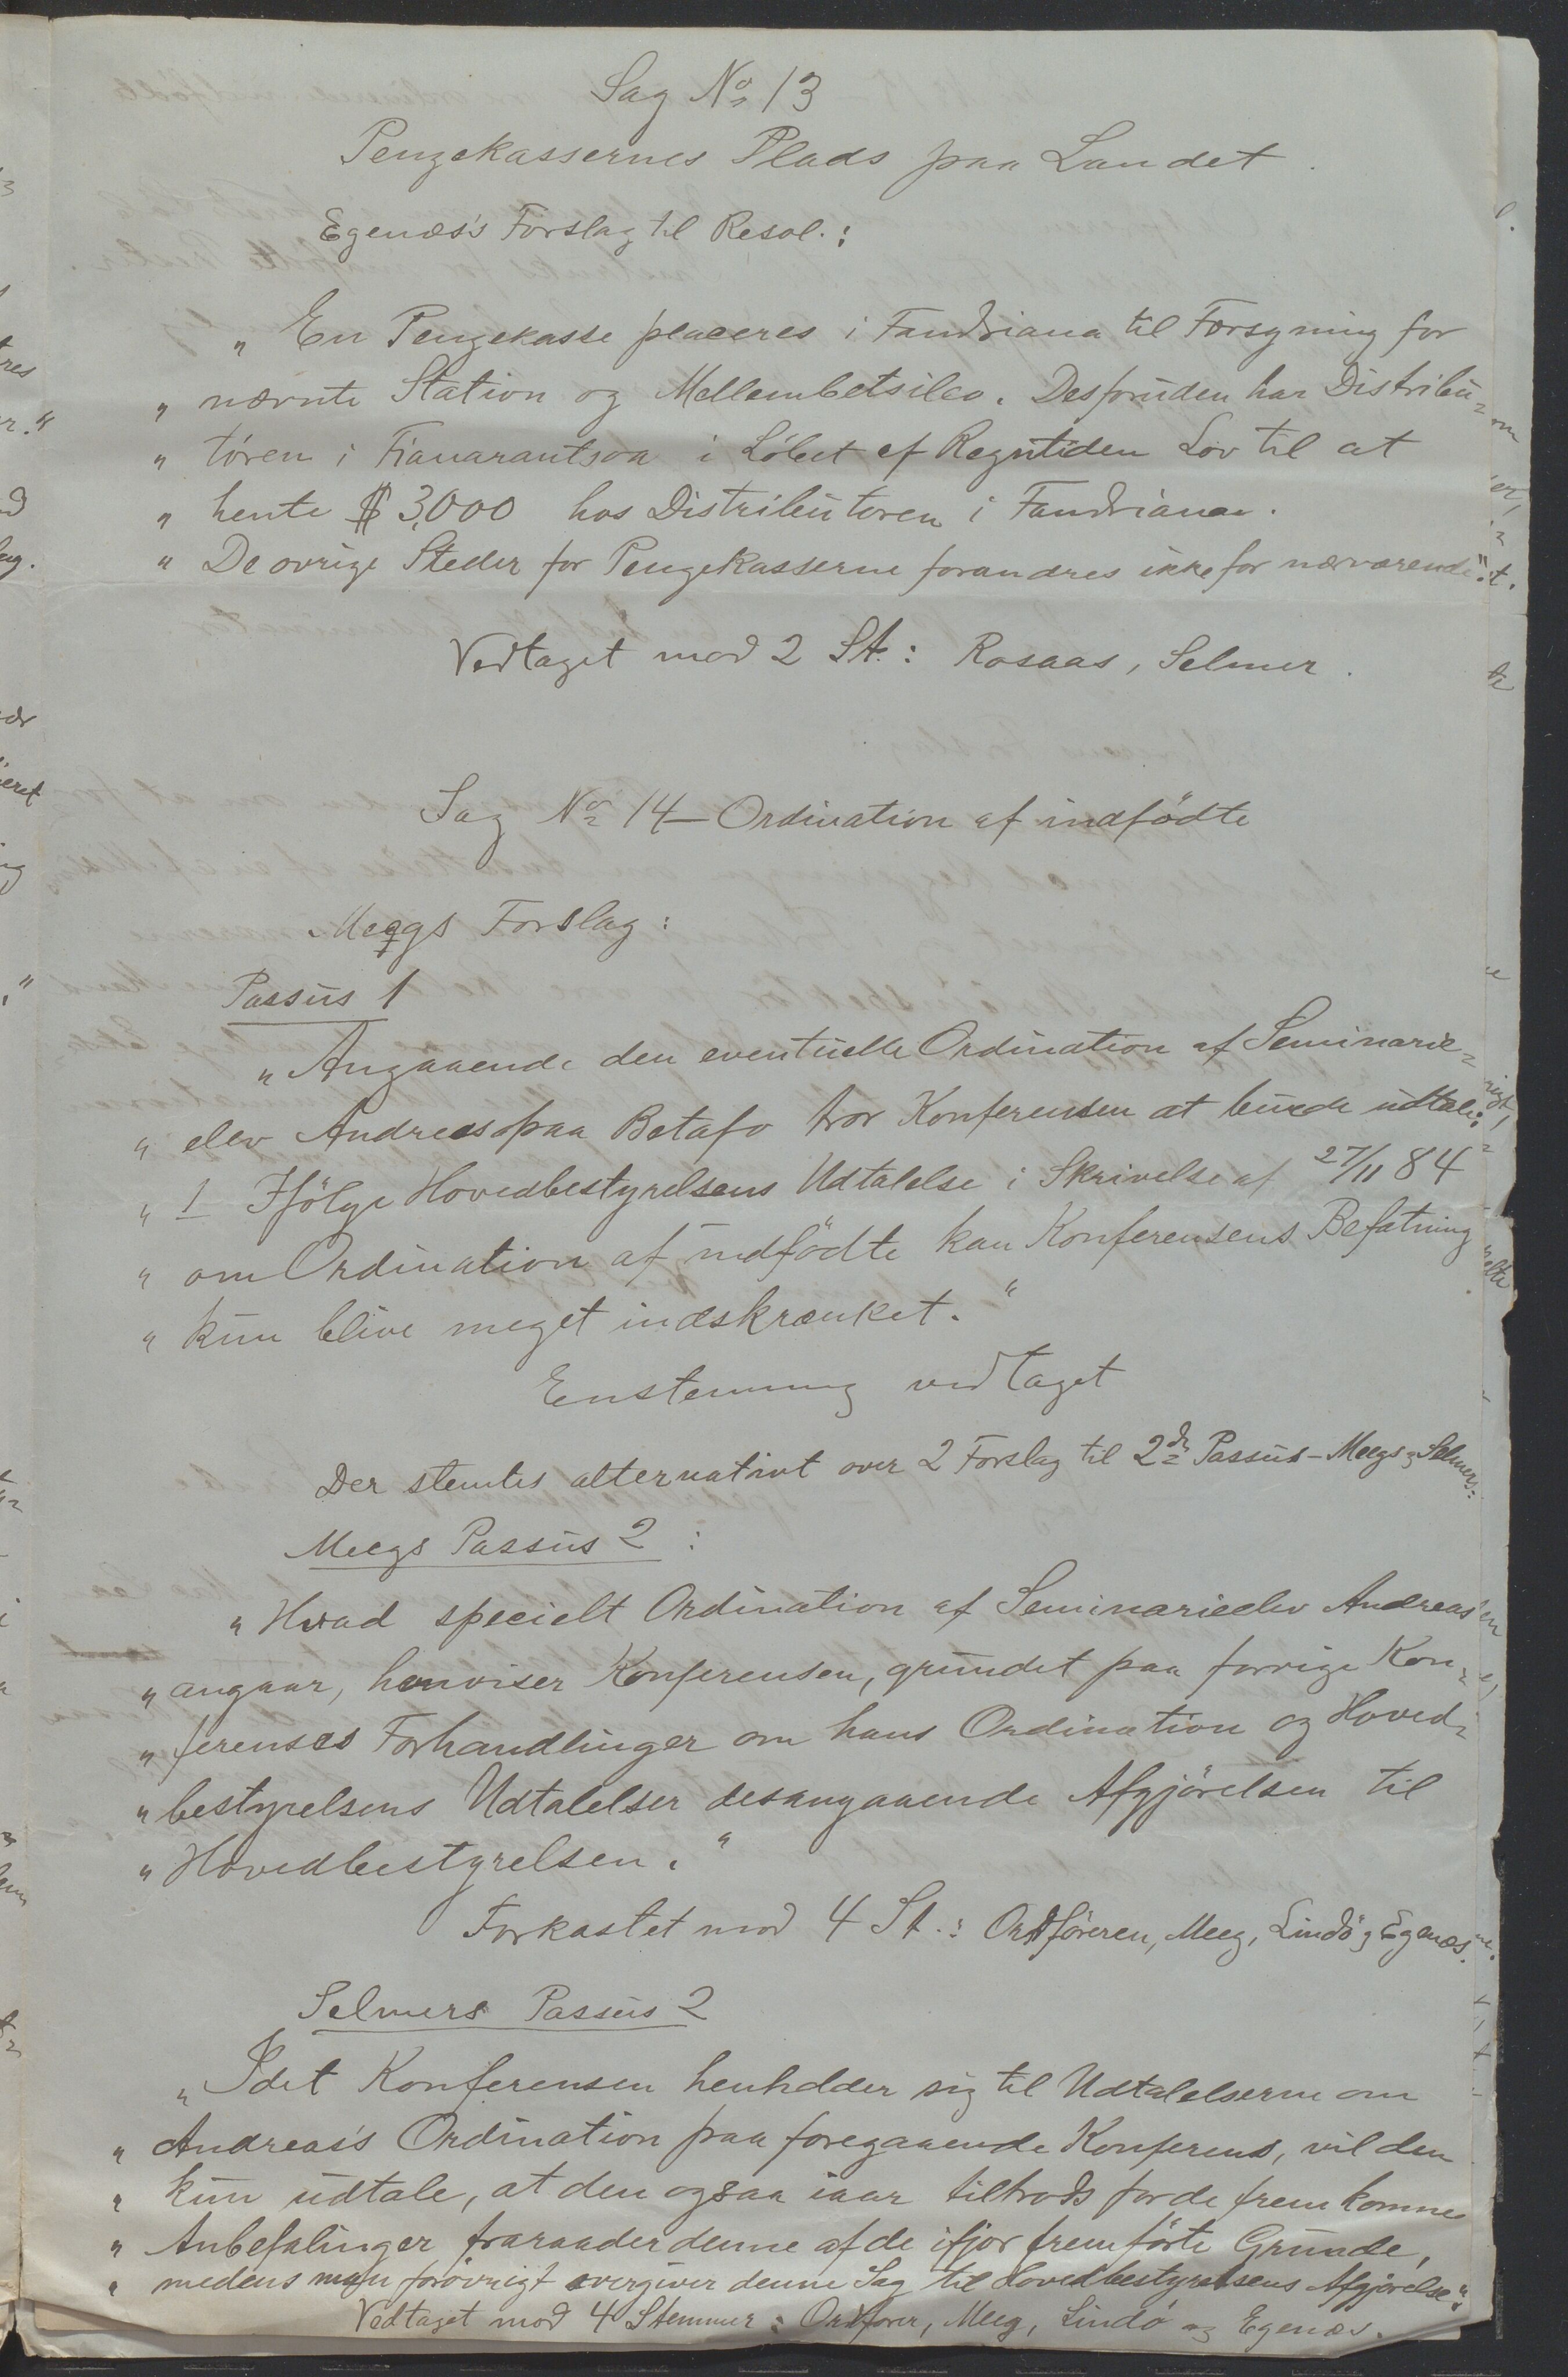 Sag No 13
Pengekassernes Plads paa Landet.
Egenæs's Forslag til Resol.:
" En Pengekasse placeres i Fandriana til Forsyning for
" nævnte Station og Mellembetsileo. Desforuden har Distribu-
" tören i Fianarantsoa i Löbet af Regntiden Lov til at
" hente $ 3,000 hos Distributören i Fandriana.
" De øvrige Steder for Pengekasserne forandres ikke for nærværende".
Vedtaget mod 2 St.: Rosaas, Selmer.
Sag No 14 – Ordination af indfödte
Meegs Forslag:
Passus 1
" Angaaende den eventuelle Ordination af Seminarie-
" elev Andreas paa Betafo tror Konferensen at burde udtale:
" 1 Ifölge Hovedbestyrelsens Udtalelse i Skrivelse af 27/11 84
" om Ordination af indfödte kan Konferensens Befatning
" kun blive meget indskrænket."
Enstemmig vedtaget
Der stemtes alternativt over 2 Forslag til 2de Passus – Meegs og Selmers:
Meegs Passus 2:
" Hvad specielt Ordination af Seminarieelev Andreas
" angaar, henviser Konferensen, grundet paa forrige Kon-
" ferenses Forhandlinger om hans Ordination og Hoved-
" bestyrelsens Udtalelser desangaaende Afgjörelsen til
" Hovedbestyrelsen."
Forkastet mod 4 St.: Ordföreren, Meeg, Lindö og Egenæs.
Selmers Passus 2
" Idet Konferensen henholder sig til Udtalelserne om
" Andreas's Ordination paa foregaaende Konferens, vil den
" kun udtale, at den ogsaa iaar tiltrods for de fremkomne
" Anbefalinger fraraader denne af de ifjor fremförte Grunde,
" medens man forövrigt overgiver denne Sag til Hovedbestyrelsens Afgjörelse".
Vedtaget mod 4 Stemmer: Ordförer, Meeg, Lindö og Egenæs.